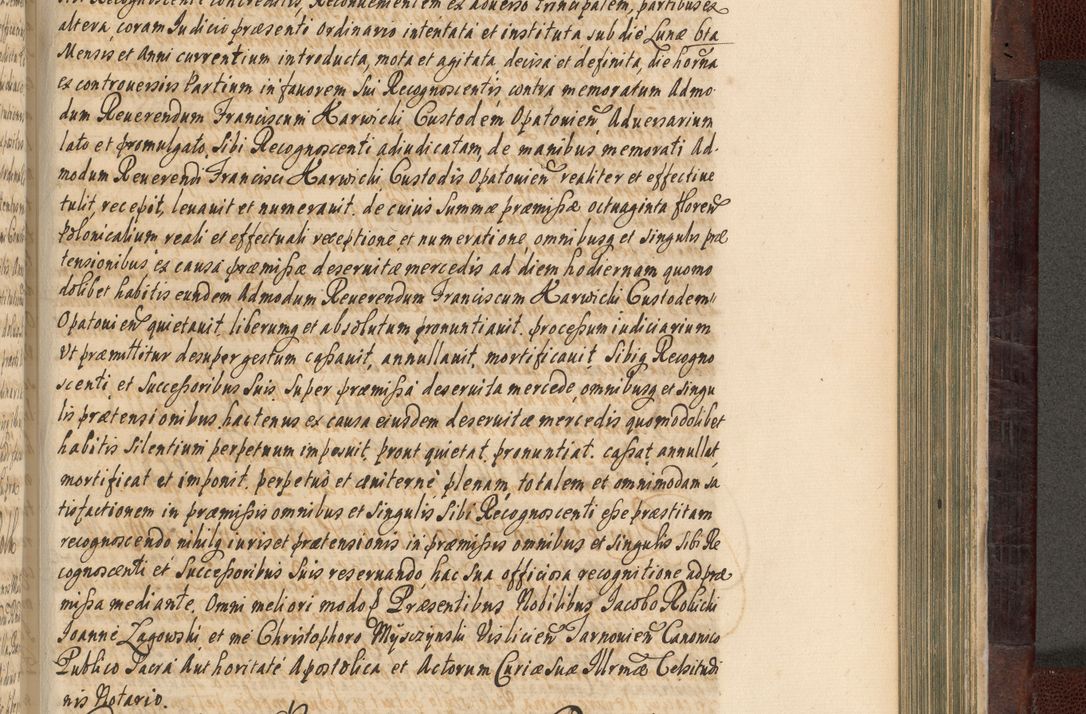 altera, coram Judicio præsenti Ordinario intentata et instituta sub die Lunæ 6ta
Mensis et Anni currentium introducta, mota et agitata, decisa et definita, die horna
ex controversiis Partium in favorem Sui Recognoscentis contra memoratum Admo-
dum Reverendum Franciscum Harwicki Custodem Opatovien Adversarium
lato et promulgato, Sibi Recognoscenti adiudicatam, de manibus memorati Ad-
modum Reverendi Francisci Harwicki Custodis Opatovien realiter et effective
tulit, recepit, levavit et numeravit. de cuius Summæ præmissæ octuaginta floren
Polonicalium reali et effectuali receptione et numeratione, omnibusq et singulis præ
tensionibus ex causa præmissæ deservitæ mercedis ad diem hodiernam quomo
dolibet habitis eundem Admodum Reverendum Franciscum Harwicki Custodem
Opatovien quietavit, liberumq et absolutum pronuntiavit. processum iudiciarium
Ut præmittitur desuper gestum cassavit, annullavit, mortificavit Sibiq Recogno
scenti et Successoribus Suis, Super præmissa deservita mercede, omnibusq et singu
lis prætensionibus hactenus ex causa eiusdem deservitæ mercedis quomodolibet
habitis Silentium perpetuum imposuit, prout quietat, pronuntiat. cassat, annullat
mortificat et imponit. perpetuo et æviterne plenam, totalem et omnimodam sa
tisfactionem in præmissis omnibus et Singulis Sibi Recognoscenti esse præstitam
recognoscendo nihilq iuris et prætensionis in præmissis omnibus et Singulis Sibi Re
cognoscenti et Successoribus Suis reservando hac sua officiosa recognitione ad præ
missa mediante, Omni meliori modo Præsentibus Nobilibus Jacobo Rolicki
Joanne Zagowski et me Christophoro Mysczynski Vislicien Tarnovien Canonico
Publico Sacra Authoritate Apostolica et Actorum Curiæ Suæ Illrmæ Celsitudi
nis Notario.